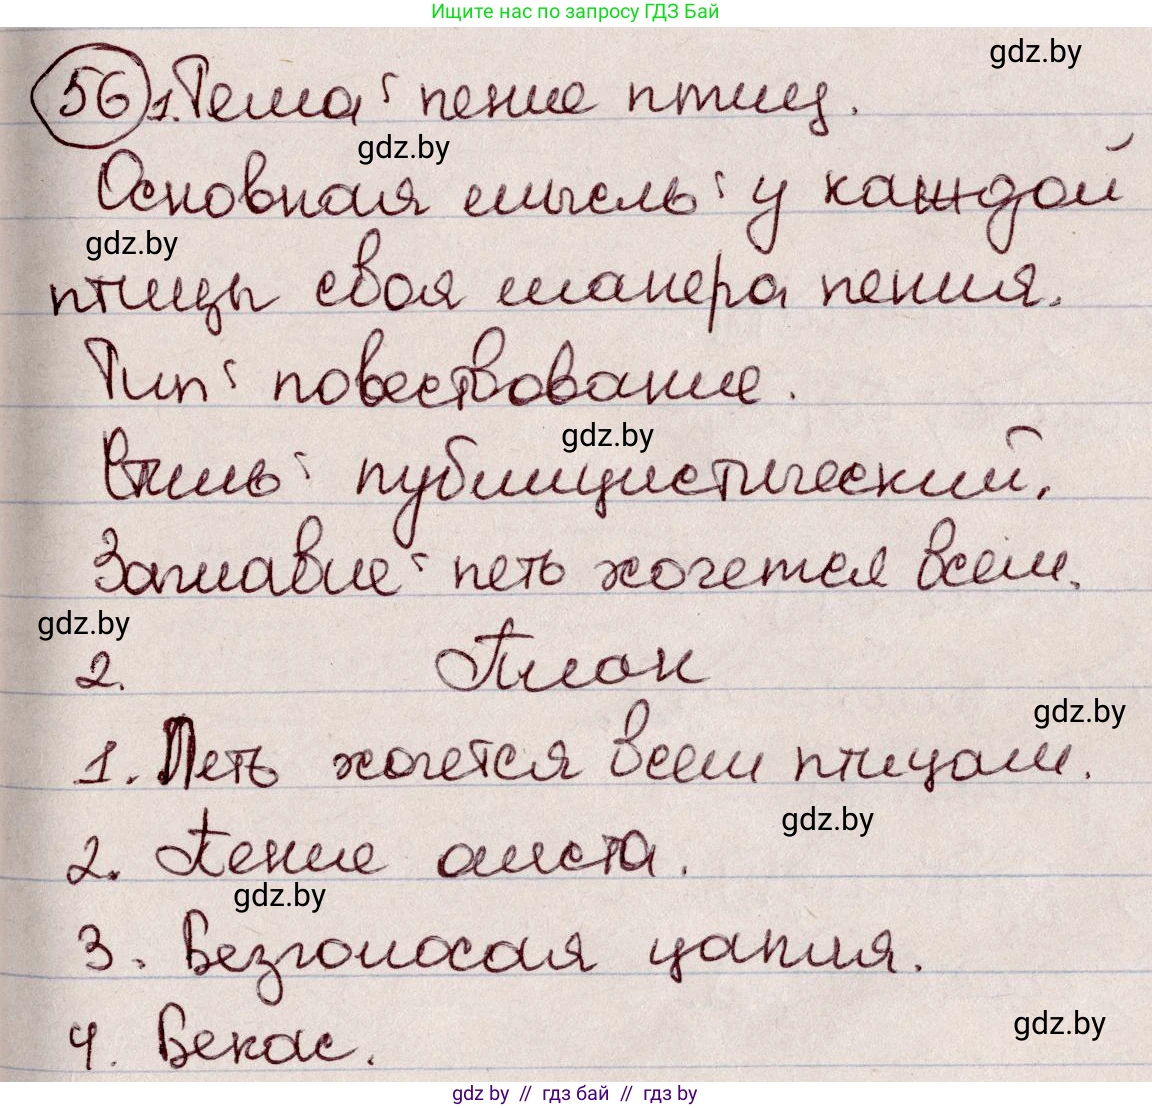 Ищите нас по запросу ГДЗ Бай
gdz.by
56 1. Тема: пение птиц.
gdz.by
Основная мысль: у каждой
gdz.by
птицы своя манера пения.
Тип: повествование.
gdz.by
Стиль: публицистический.
Заглавие: петь хочется всем.
gdz.by
2. План
gdz.by
1. Петь хочется всем птицам.
gdz.by
2. Пение аиста.
gdz.by
3. Безголосая цапля.
gdz.by
4. Бекас.
gdz.by // гдз бай // гдз by